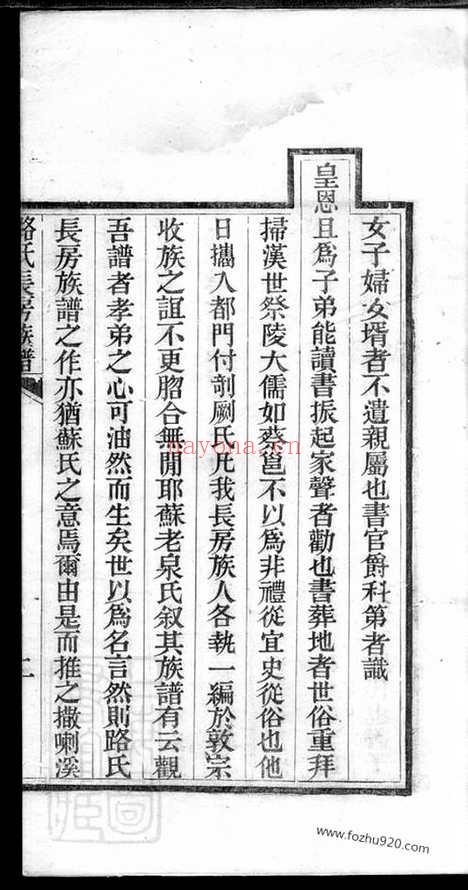 女子婦女壻者不遺親屬也書官爵科第者識
皇恩且爲子弟能讀書振起家聲者勸也書葬地者世俗重拜
掃漢世祭陵大儒如蔡邕不以爲非禮從宜史從俗也他
日攜入都門付剞劂氏凡我長房族人各執一編於敦宗
收族之誼不更脗合無閒耶蘇老泉氏叙其族譜有云觀
吾譜者孝弟之心可油然而生矣世以爲名言然則路氏
長房族譜之作亦猶蘇氏之意焉爾由是而推之撒喇溪
路氏長房族譜
二
nayona.cn
www.fozhu920.com